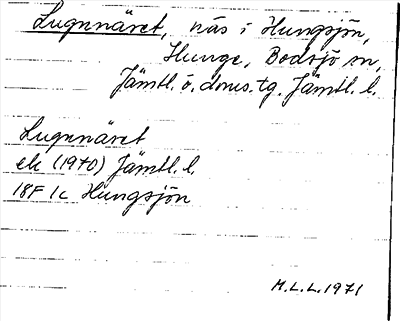 Lugnnäset, näs i Hungsjön,
Hunge, Bodsjö sn,
Jämtl. ö. doms. tg. Jämtl. l.
Lugnnäset
ek (1970) Jämtl. l.
18F 1c Hungsjön
M.L.L. 1971